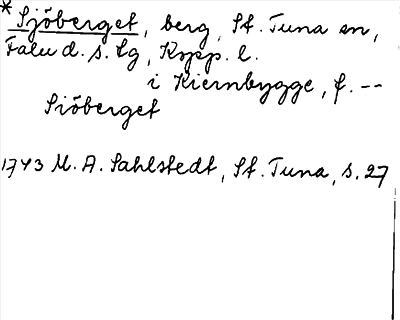 * Sjöberget, berg, St. Tuna sn,
Falu d. s. lg, Kopp. l.
i Kiernbygge, f. --
Siöberget
1743 M. A. Sahlstedt, St. Tuna, s. 27